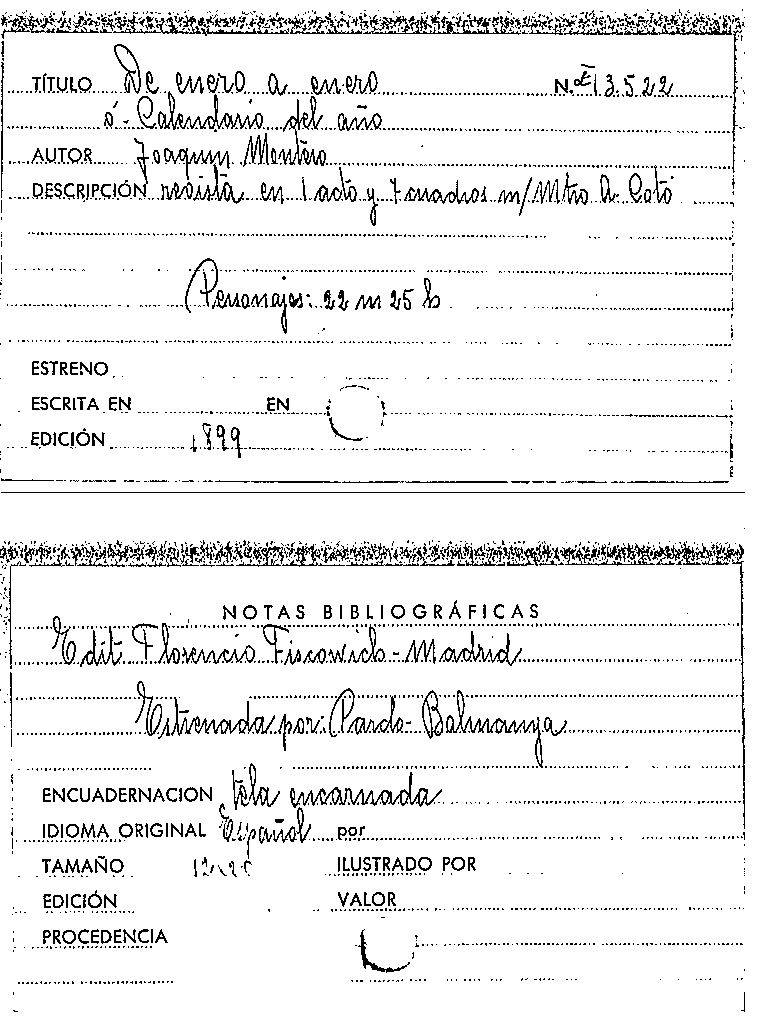 TÍTULO De enero a enero N.º E 13.522
ó - Calendario del año
AUTOR Joaquin Montero
DESCRIPCIÓN revista en 1 acto y 7 cuadros m/ Mtro A. Cotó
Personajes: 22 m 25 h
ESTRENO
ESCRITA EN EN
EDICIÓN 1899
NOTAS BIBLIOGRÁFICAS
Edit: Florencio Fiscowich - Madrid
Estrenada por: Pardo - Balmanya
ENCUADERNACION tela encarnada
IDIOMA ORIGINAL Español por
TAMAÑO ILUSTRADO POR
EDICIÓN VALOR
PROCEDENCIA